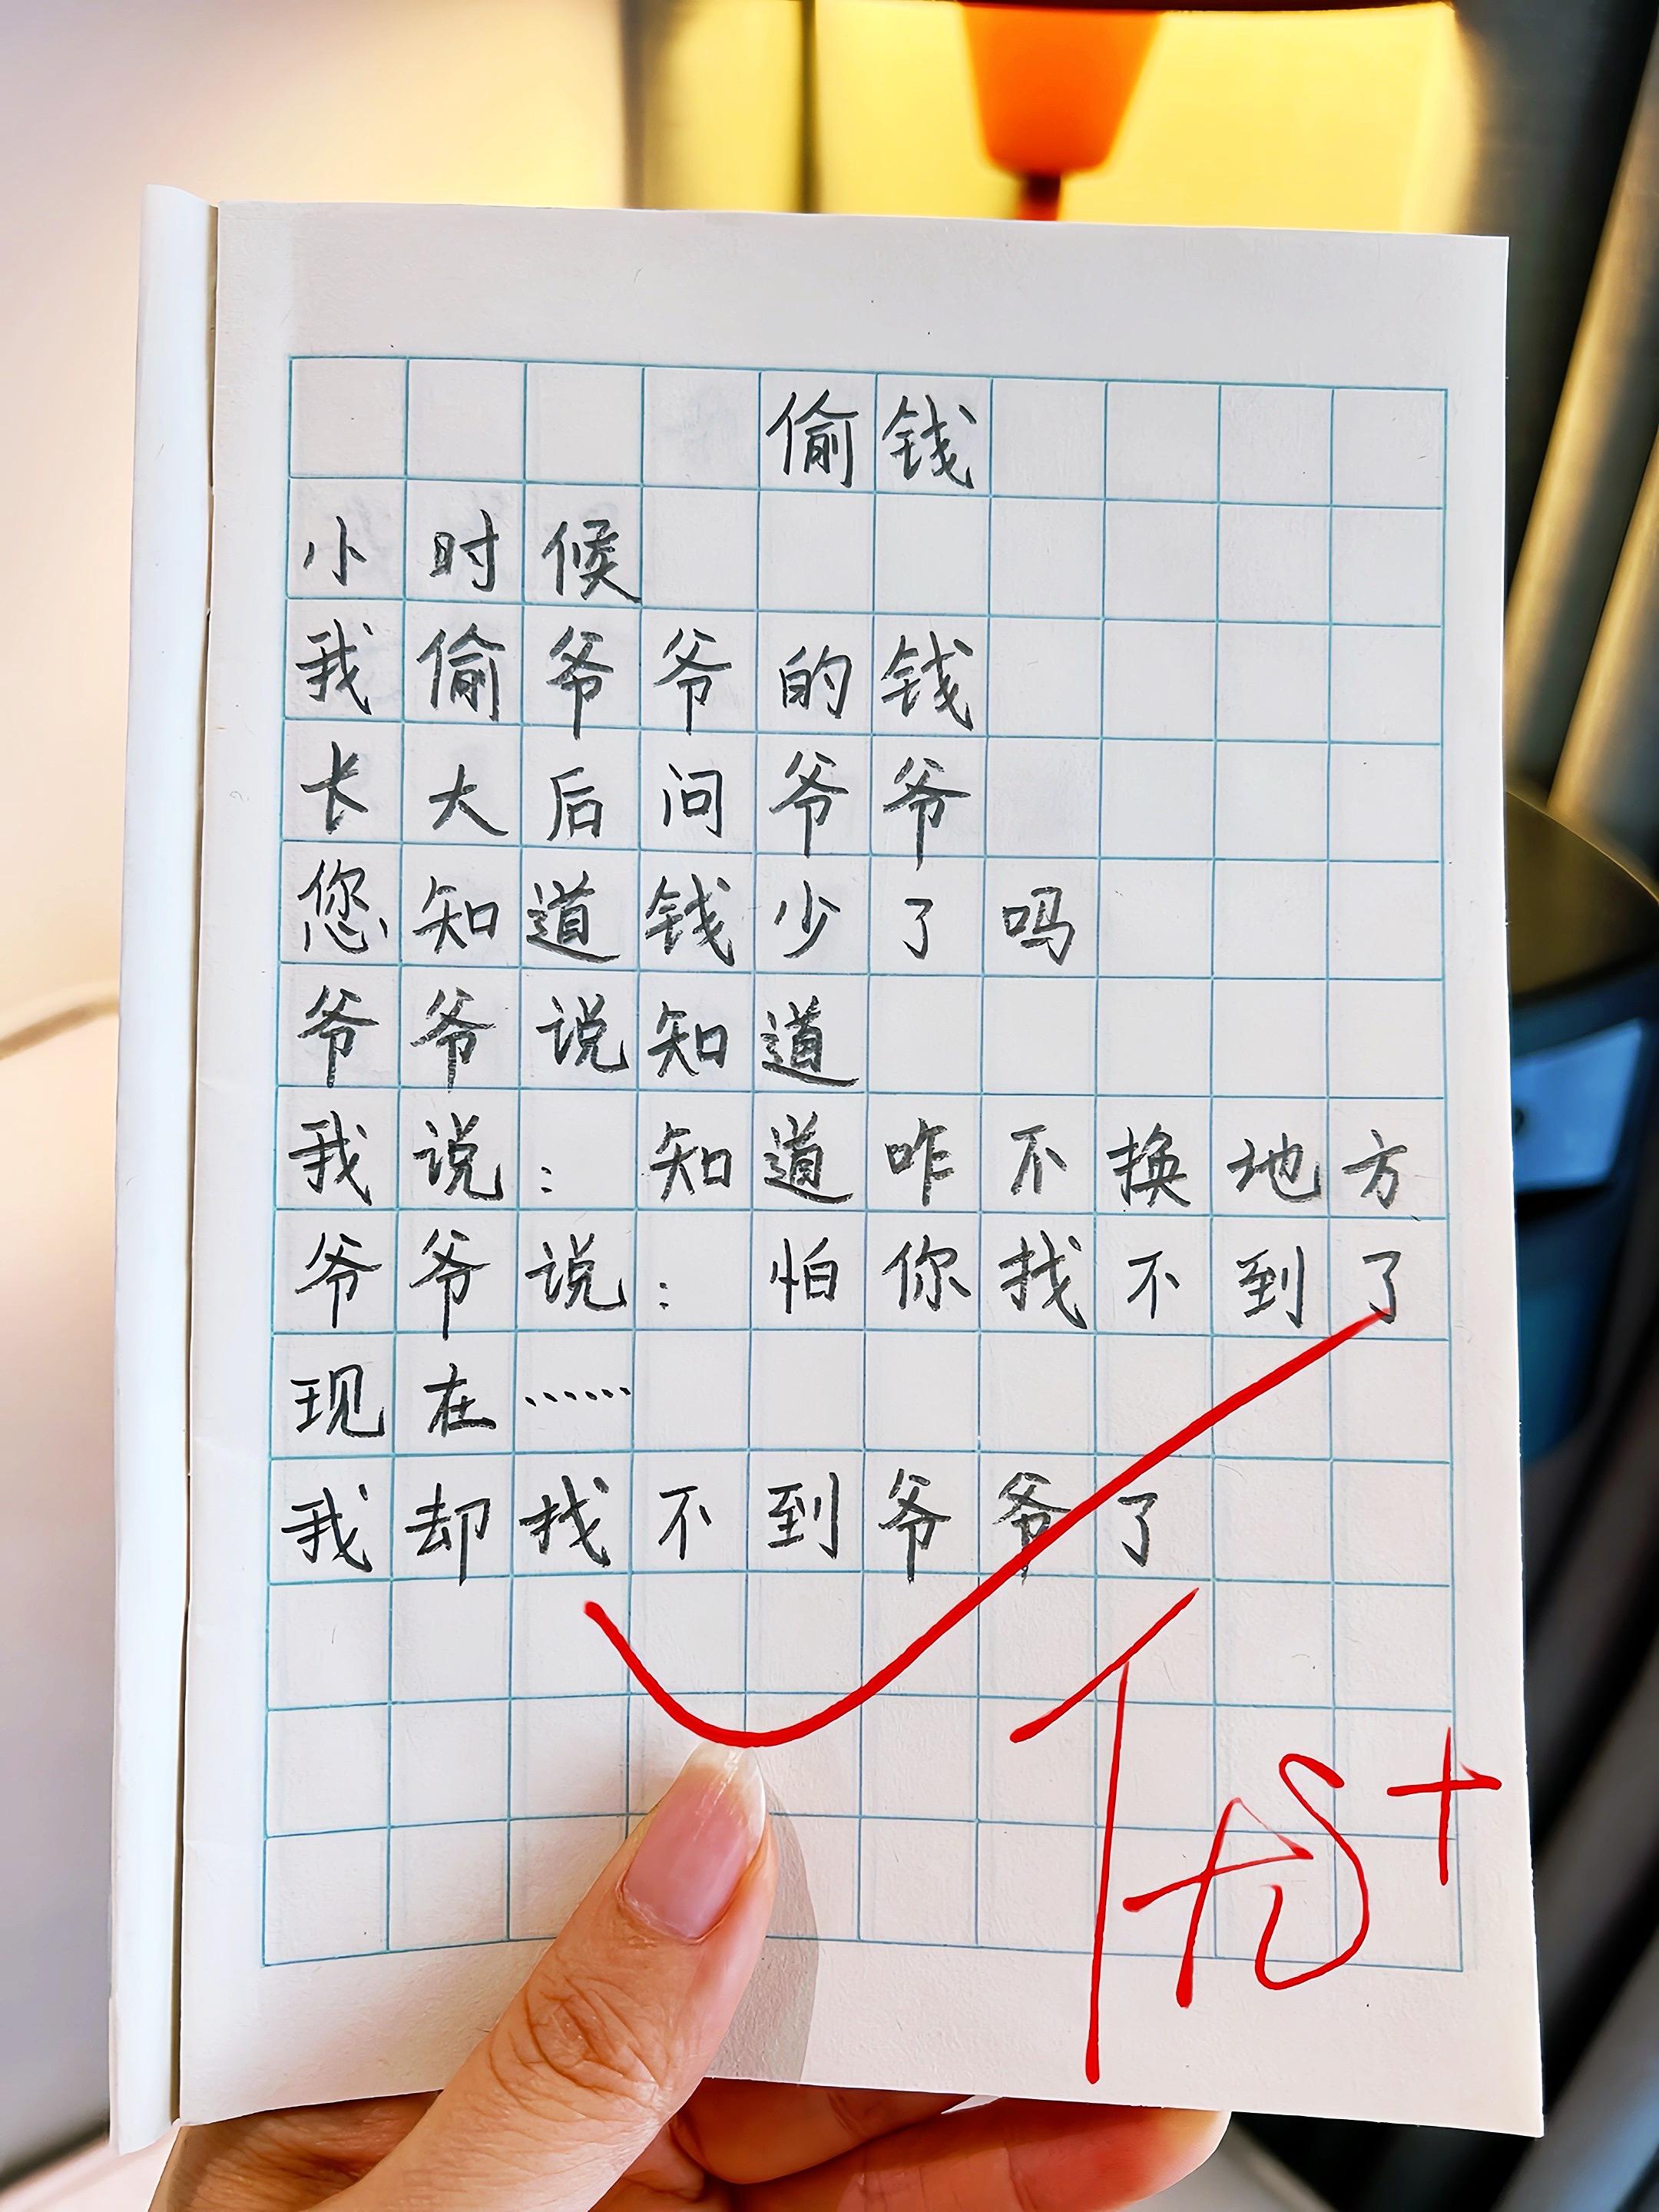 偷钱
小时候
我偷爷爷的钱
长大后问爷爷
您知道钱少了吗
爷爷说知道
我说：知道咋不换地方
爷爷说：怕你找不到了
现在……
我却找不到爷爷了
优+